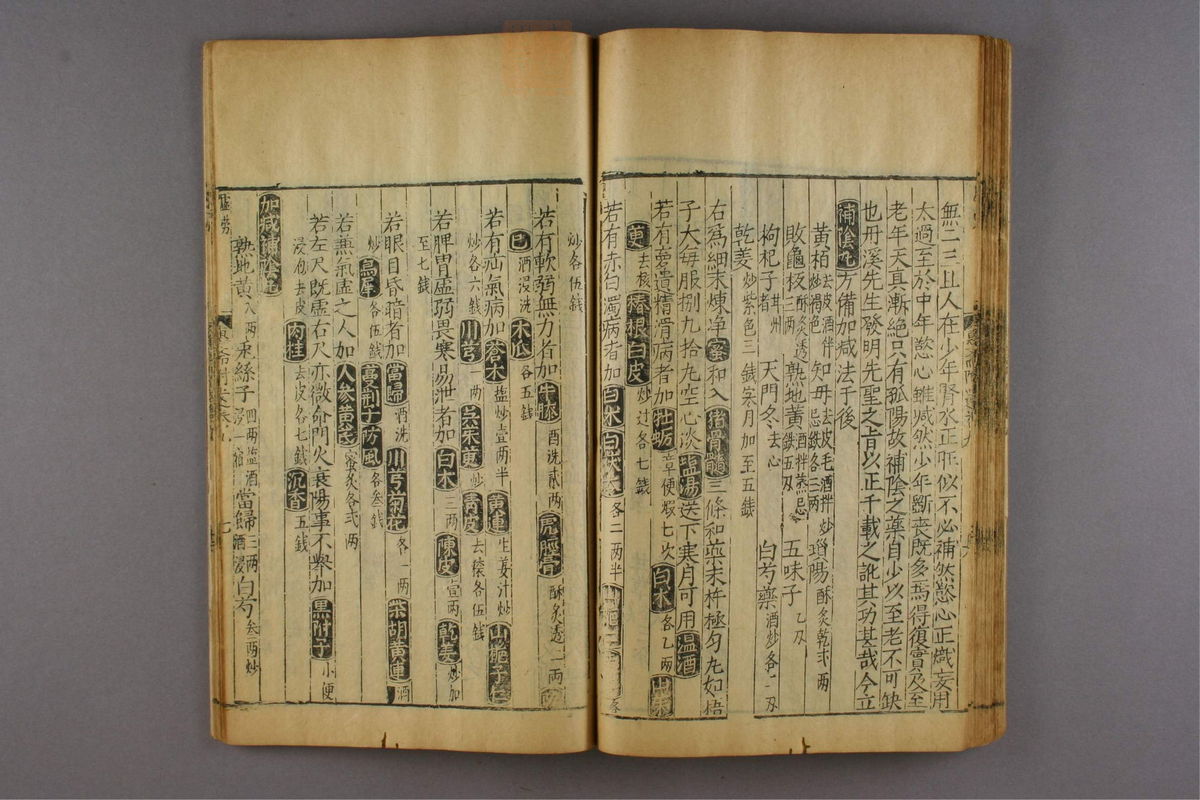 無一二且人在少年腎水正旺似不必補然慾心正熾妄用
太過至於中年慾心雖减然少年斵丧既多焉得復實及至
老年天真漸絶只有孤陽故補陰之藥自少以至老不可缺
也丹溪先生發明先聖之旨以正千載之訛其功甚哉今立
補陰丸方備加减法于後
黄柏去皮酒拌炒褐色 知母去皮毛酒拌炒忌鉄各三两 瑣陽酥炙乾弍两
敗龜板酥炙透三两 熟地黄酒拌蒸忌鉄五刄 五味子乙刄
枸杞子甘州者 天門冬去心 白芍藥酒炒各二刄
乾姜炒紫色三錢寒月加至五錢
右為細末煉净蜜和入猪骨髓三條和藥末杵極匀丸如梧
子大每服捌九拾丸空心淡塩湯送下寒月可用温酒
若有夢遺精滑病者加牡蛎童便煆七次 白术各乙两 山茱
萸去核 椿根白皮炒过各七錢
若有赤白濁病者加白术白茯苓各二两半
炒各伍錢
若有軟弱無力者加牛膝酒洗貳两 虎脛骨酥炙透一两 防
巳酒浸洗 木瓜各五錢
若有疝氣病加蒼术塩炒壹两半 黄連生姜汁炒 山梔子仁
炒各六錢 川芎一两 吴茱萸炒 青皮去穣各伍錢
若脾胃虚弱畏寒易泄者加白术三两 陳皮壹两 乾姜炒加
至七錢
若眼目昏暗者加當歸酒洗 川芎菊花各一两 茶胡黄連酒
炒 烏犀各伍錢 蔓荆子防風各叁錢
若無氣虚之人加人參黄芪蜜炙各弍两
若左尺既虚右尺亦微命門火衰陽事不舉加黒附子小便
浸炮去皮 肉桂去皮各七錢 沉香五錢
加减補陰丸
熟地黄八两 兎絲子四两塩酒浸一宿 當歸三两酒浸 白芍叁两炒